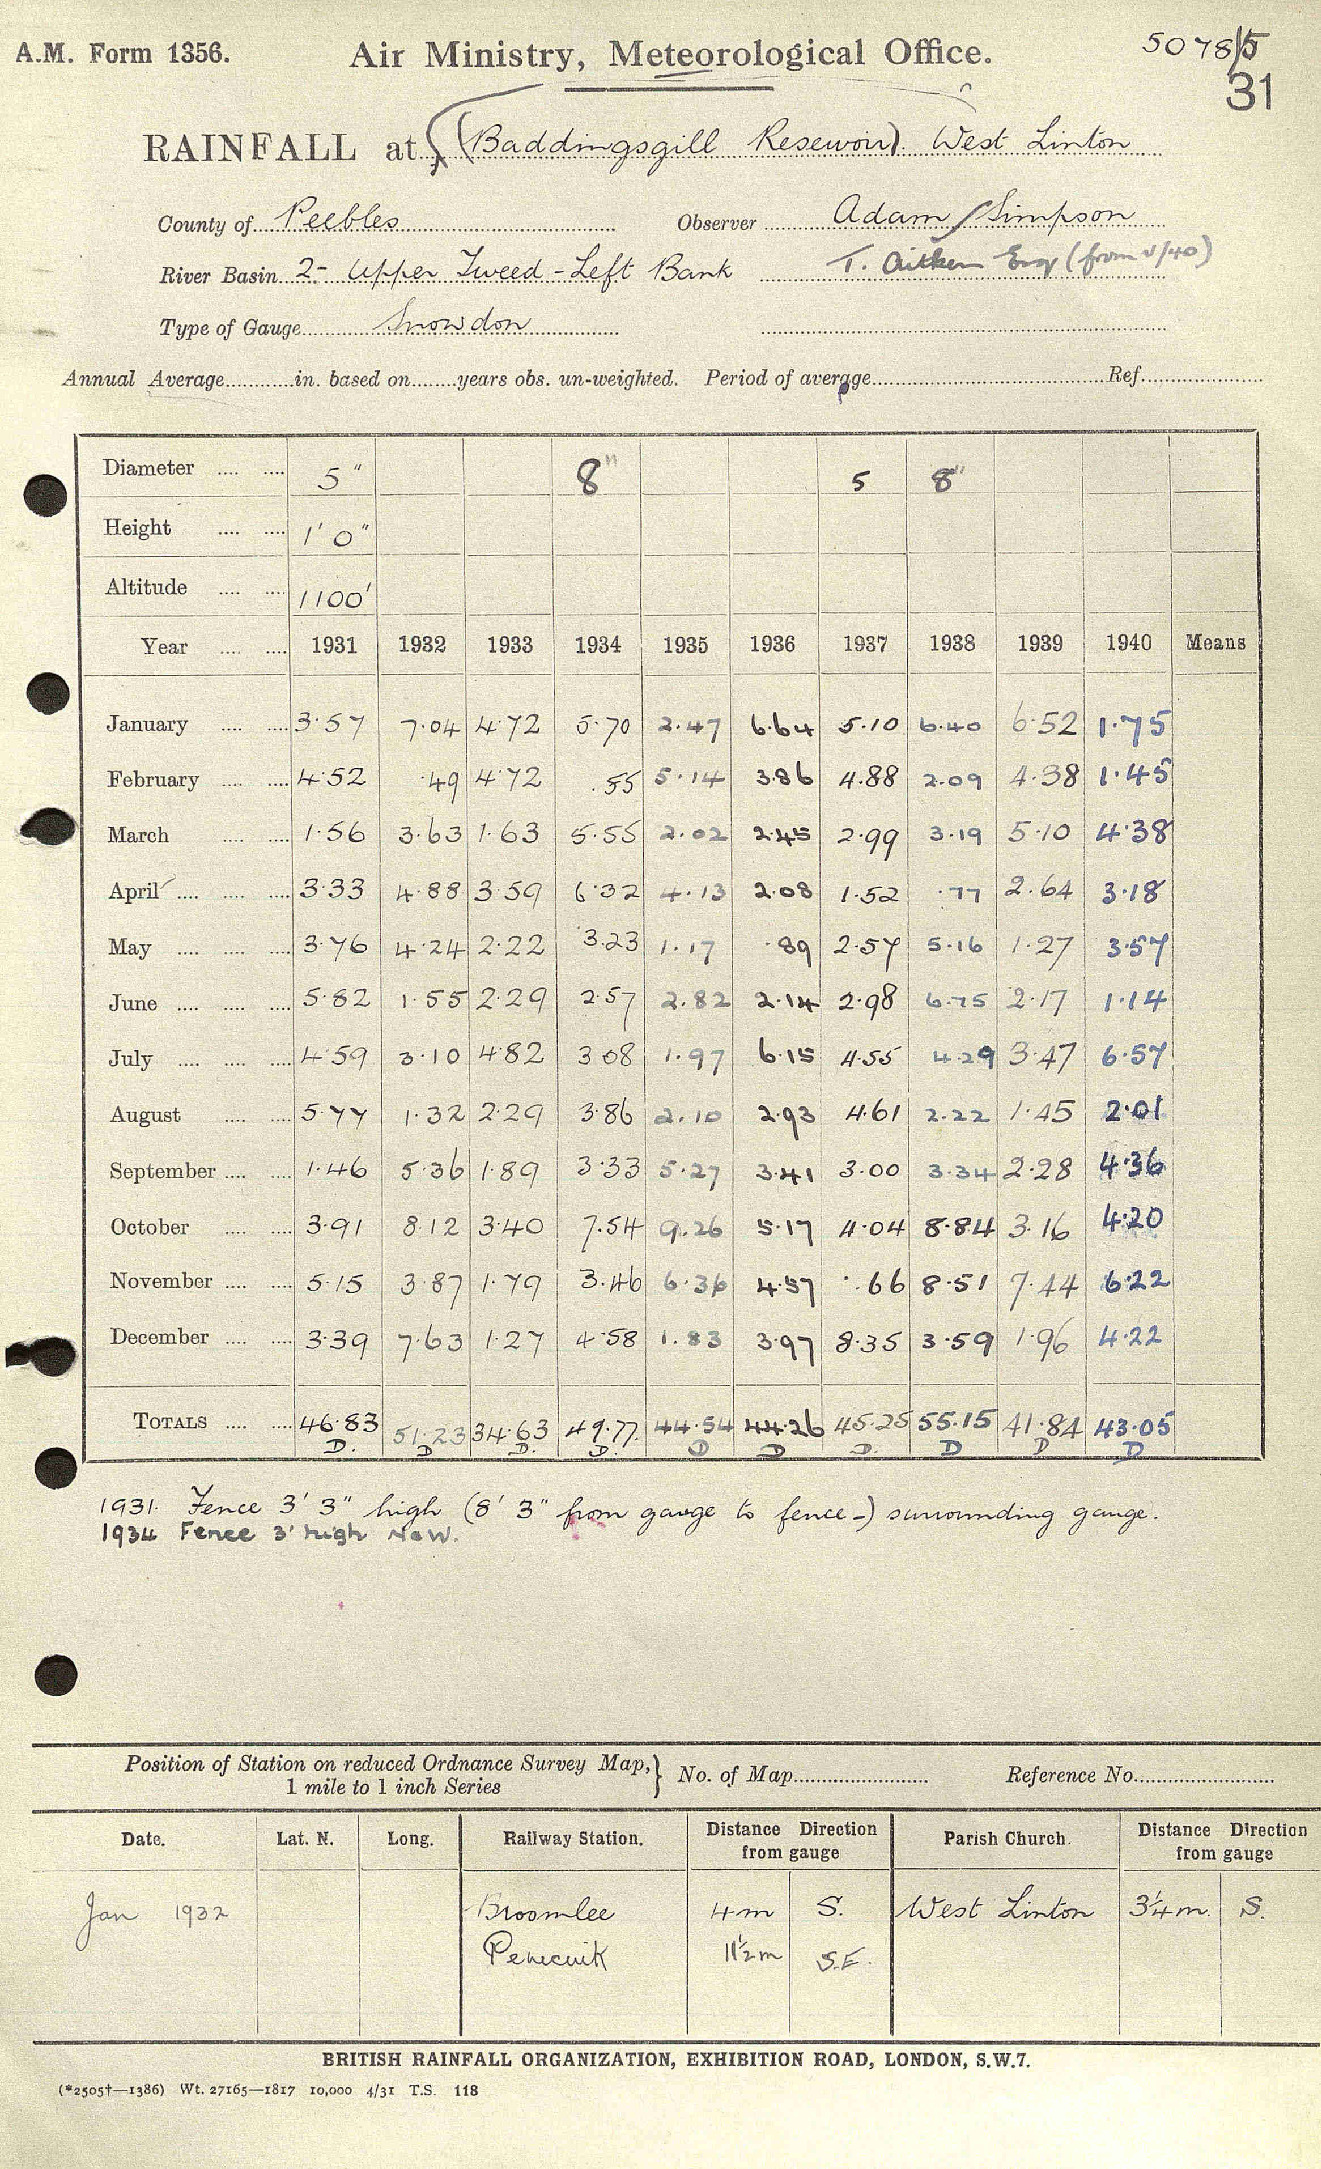 A.M. Form 1356. Air Ministry, Meteorological Office. 5078/5
31
RAINFALL at (Baddingsgill Reservoir) West Linton
County of Peebles Observer Adam Simpson
River Basin 2- Upper Tweed - Left Bank T. Aitken Esq (from 1/40)
Type of Gauge Snowdon
Annual Average in. based on years obs. un-weighted. Period of average Ref.
Diameter 5" 8" 5 8"
Height 1' 0"
Altitude 1100'
Year 1931 1932 1933 1934 1935 1936 1937 1938 1939 1940 Means
January 3·57 7·04 4·72 5·70 2·47 6·64 5·10 6·40 6·52 1·75
February 4·52 ·49 4·72 .55 5·14 3·86 4·88 2·09 4·38 1·45
March 1·56 3·63 1·63 5·55 2·02 2·45 2·99 3·19 5·10 4·38
April 3·33 4·88 3·59 6·32 4·13 2·08 1·52 ·77 2·64 3·18
May 3·76 4·24 2·22 3·23 1·17 ·89 2·57 5·16 1·27 3·57
June 5·82 1·55 2·29 2·57 2.82 2·14 2·98 6·75 2·17 1·14
July 4·59 3·10 4·82 3 08 1·97 6·15 4·55 4·29 3·47 6·57
August 5·77 1·32 2·29 3·86 2.10 2·93 4·61 2·22 1·45 2·01
September 1·46 5·36 1·89 3·33 5·27 3·41 3·00 3·34 2·28 4·36
October 3·91 8·12 3·40 7·54 9.26 5·17 4·04 8·84 3·16 4·20
November 5·15 3·87 1·79 3·46 6·36 4·57 ·66 8·51 7·44 6·22
December 3·39 7·63 1·27 4·58 1.83 3·97 8·35 3·59 1·96 4·22
TOTALS 46·83 51·23 34·63 49·77 44·54 44·26 45·25 55·15 41·84 43·05
D. D D. D. D D D. D D D
1931. Fence 3' 3" high (8' 3" from gauge to fence-) surrounding gauge.
1934 Fence 3' high NOW.
Position of Station on reduced Ordnance Survey Map, 1 mile to 1 inch Series } No. of Map Reference No.
Date. Lat. N. Long. Railway Station. Distance Direction from gauge Parish Church. Distance Direction from gauge
Jan 1932 Broomlee 4 m S. West Linton 3¼ m. S.
Penicuik 11½ m S.E.
BRITISH RAINFALL ORGANIZATION, EXHIBITION ROAD, LONDON, S.W.7.
(*2505†—1386) Wt. 27165—1817 10,000 4/31 T.S. 118